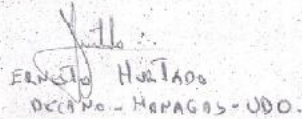 ERNESTO HURTADO
DECANO - MONAGAS - UDO.